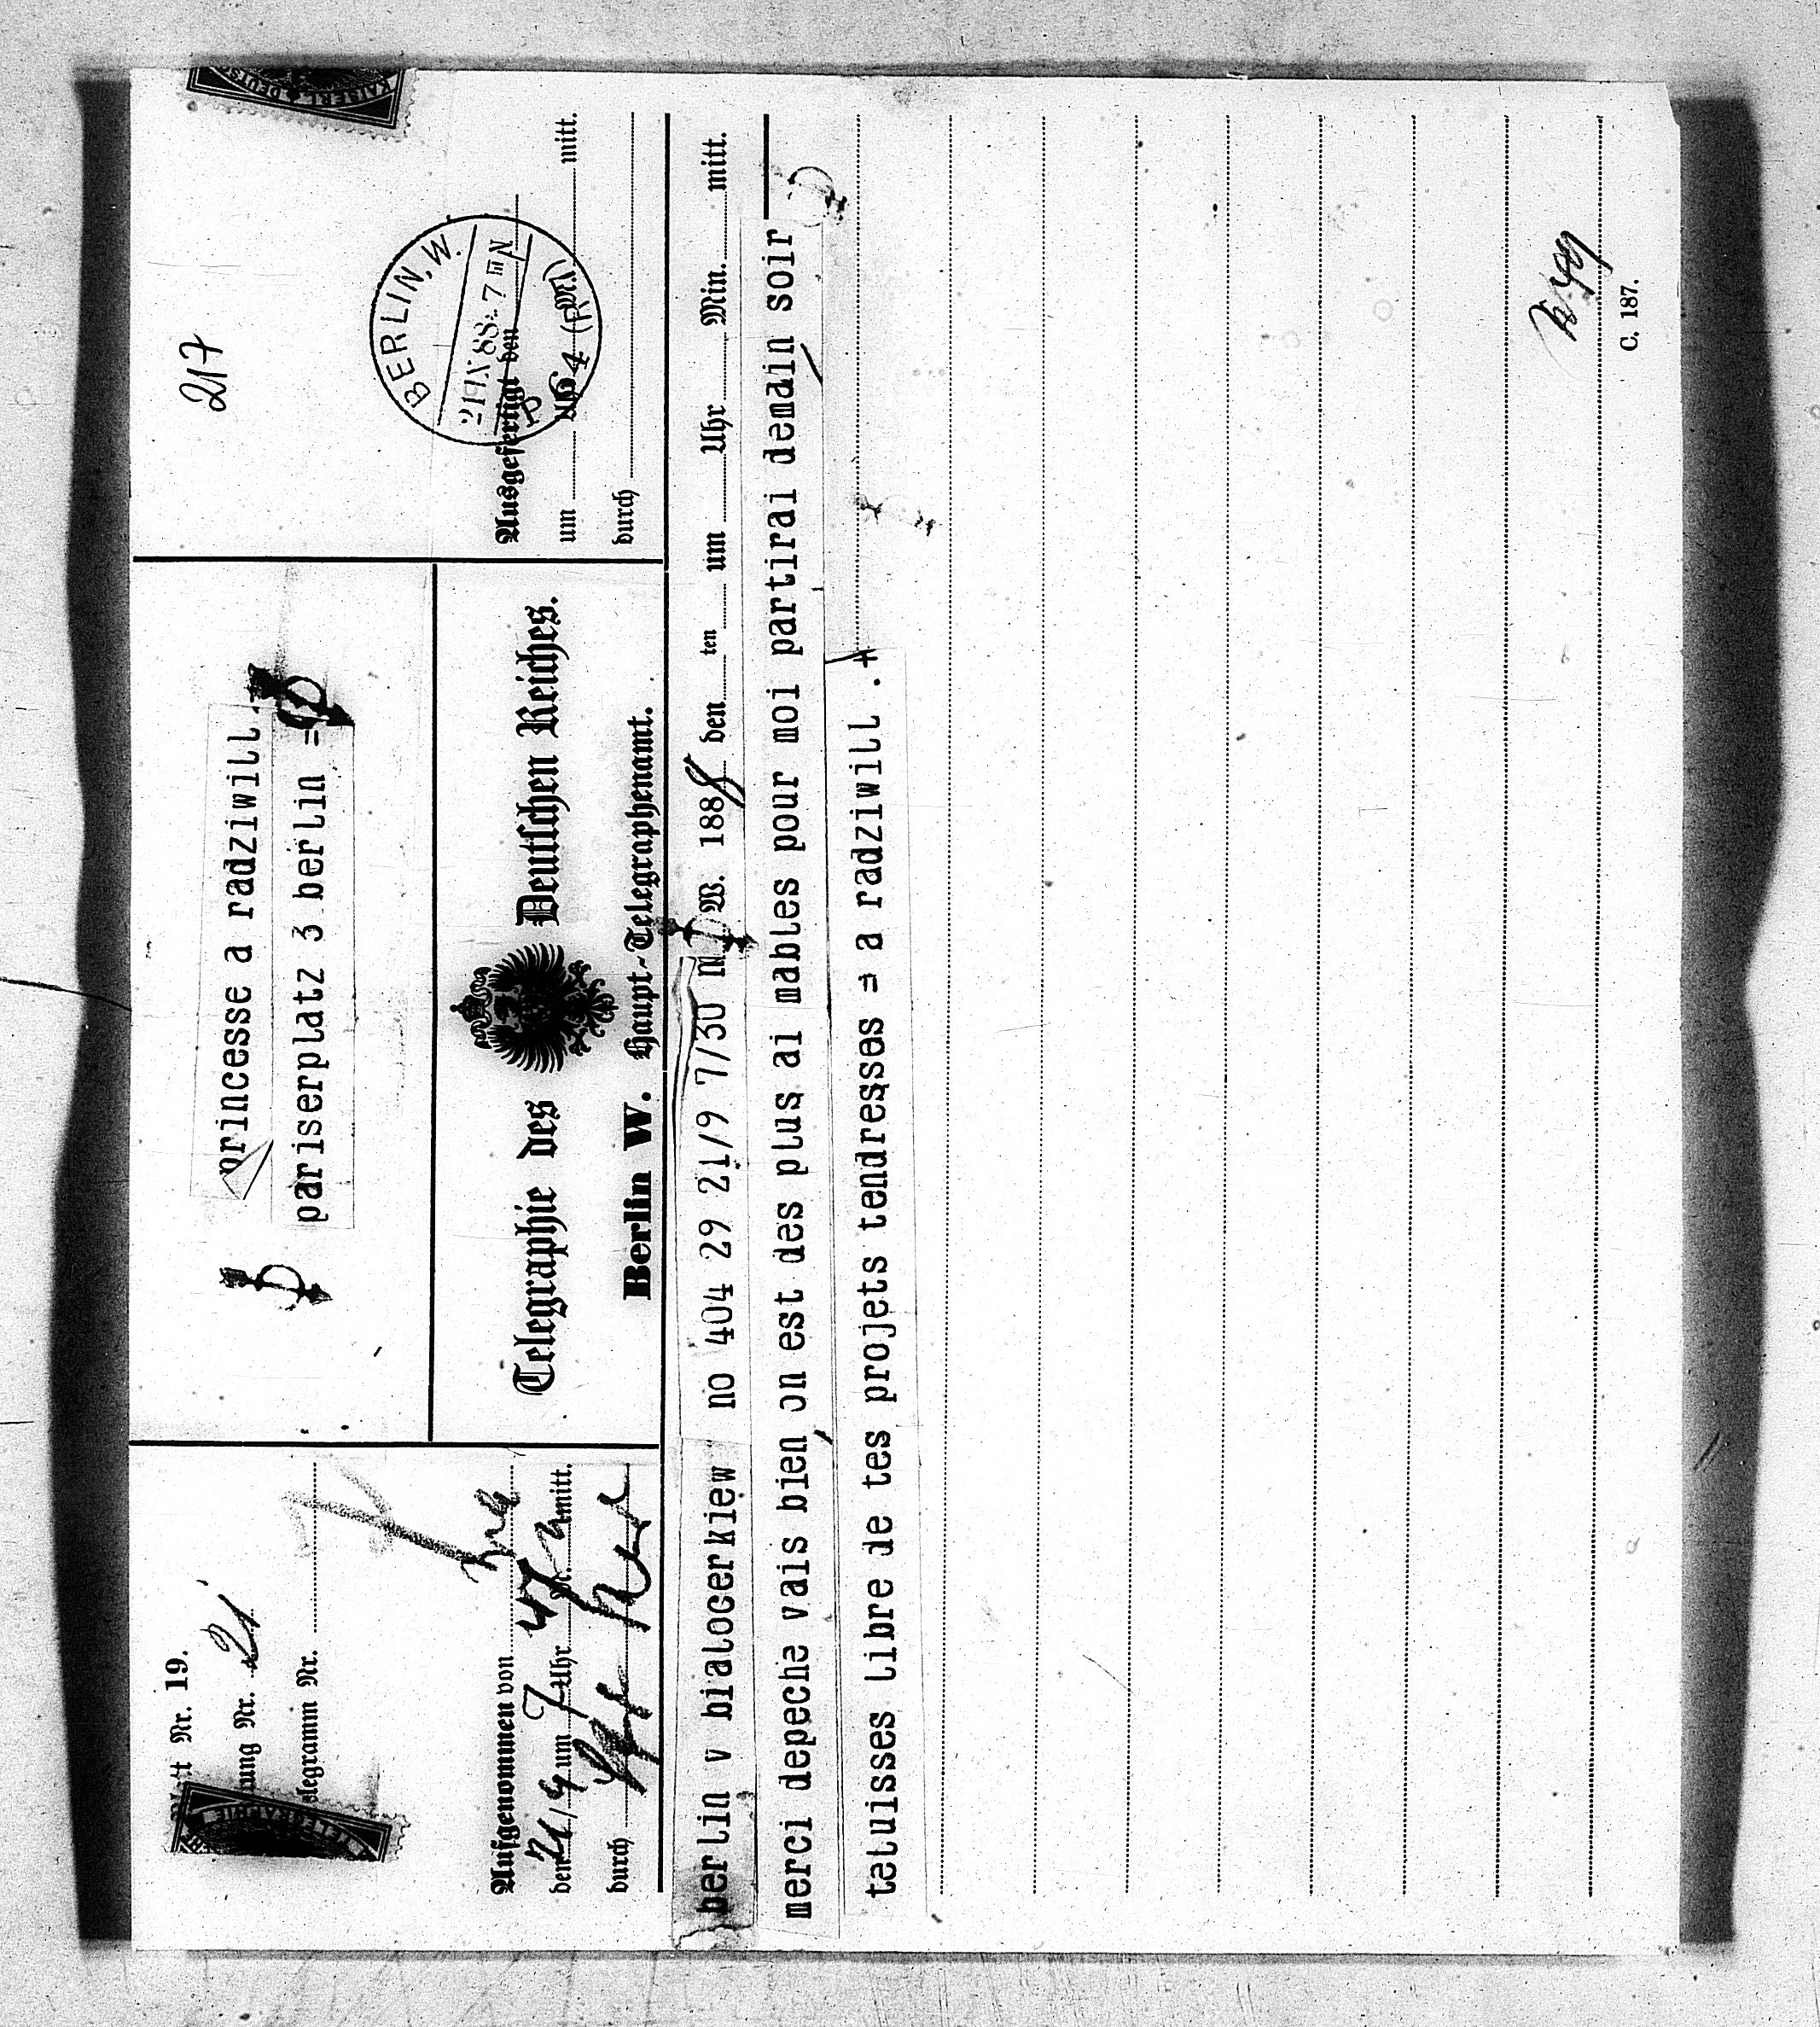 Blatt Nr. 19.
Leitung Nr. 21
Telegramm Nr.
princesse a radziwill
pariserplatz 3 berlin =
217
Telegraphie des Deutschen Reiches.
Berlin W. Haupt-Telegraphenamt.
Aufgenommen von
den 21/9 um 7 Uhr 47 M. mitt.
durch
BERLIN, W.
21 IX 88 7
Ausgefertigt den
um mitt.
durch
berlin v bialocerkiew no 404 29 21/9 7/30 m W. 1888 den ten um Uhr Min. mitt.
merci depeche vais bien on est des plus ai mables pour moi partirai demain soir
tatuisses libre de tes projets tendresses = a radziwill .+
C. 187.
KAISERL. DEUTSCHE
TELEGRAPHIE